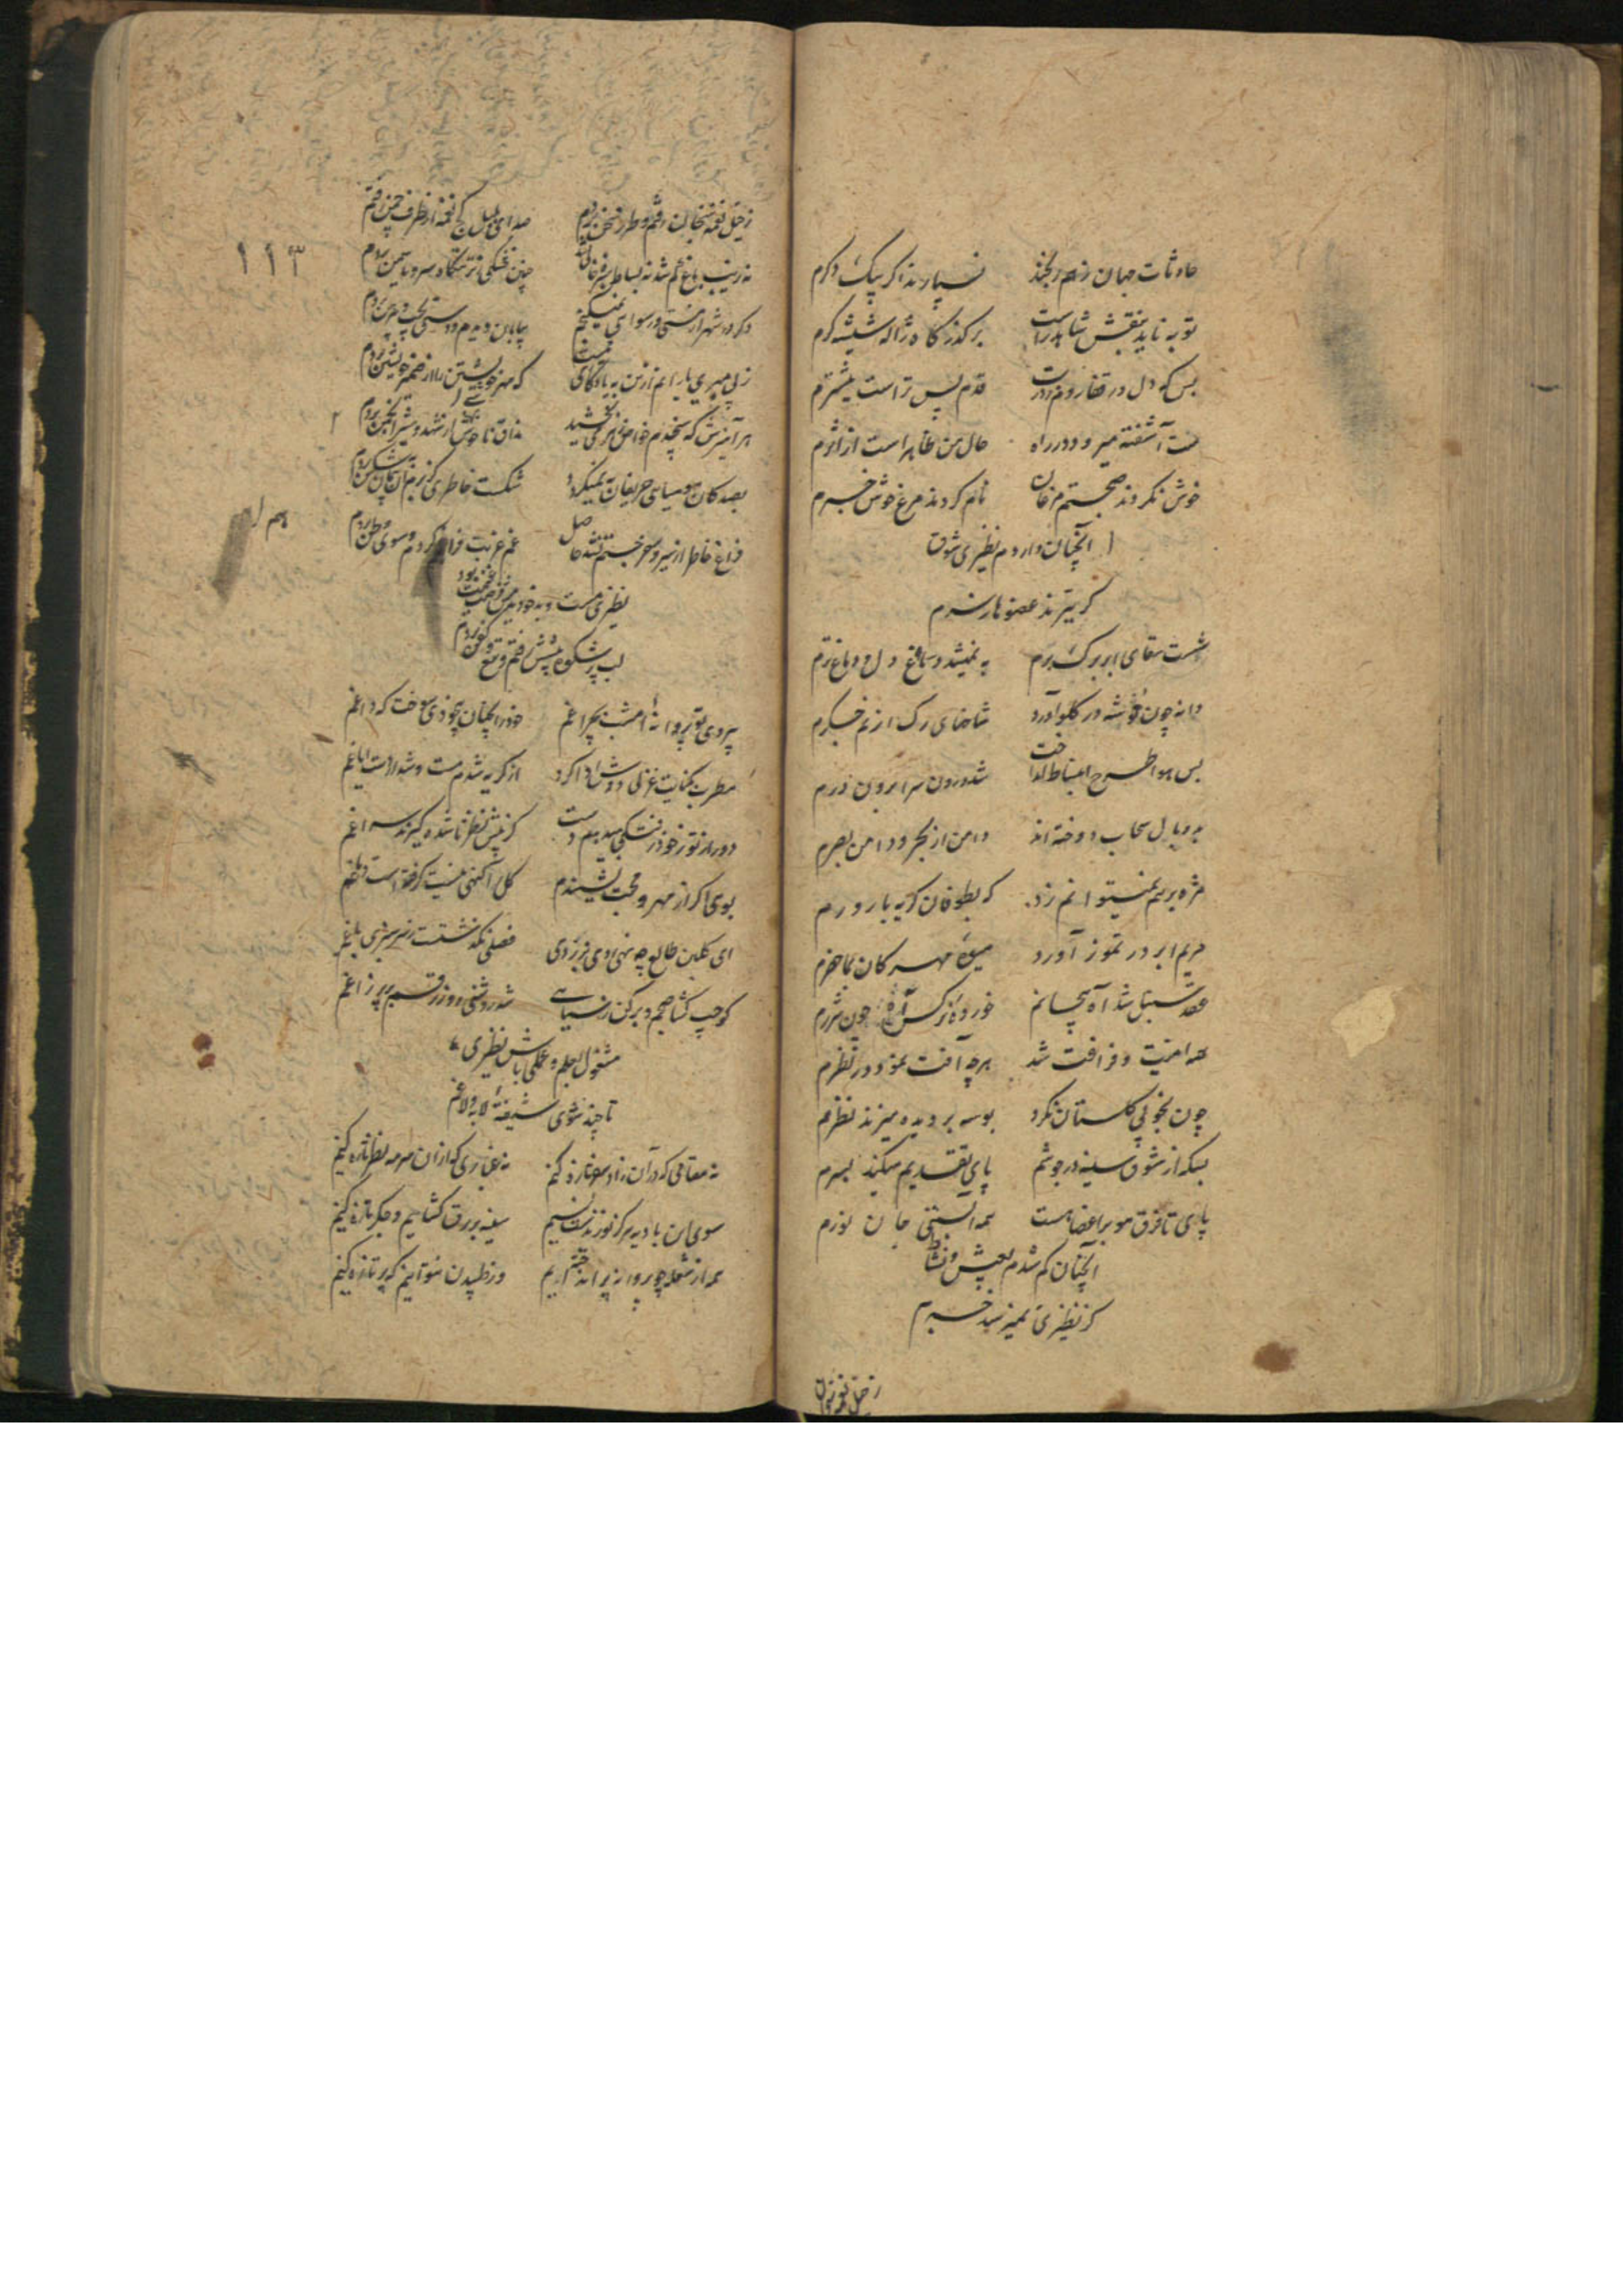 حادثات جهان ز هم ریخند نسپارند اگر بیک دکرم
توبه ناید بنقش شاهد راست بر کذر کاه ژاله شیشه کرم
بس که دل در قفا رود قدم پس تر است پیشترم
مست آشفته میرود در راه حال من ظاهر است از اثرم
خوش نکردند صحبتم مرغان نام کردند مرغ خوش خبرم
آنچنان دارم نظیری شوق
کر بتیزند عضوها ز سرم
شست سقای ابر برک برم به نمیشد دماغ و دل دماغ ترم
دانه چون خوشه در کلو آورد شاخهای رک از نم جکرم
بس هوا طرح انبساط انداخت شد درون سرا برون درم
پر و بال سحاب دوخته اند دامن از بحر و دامن بصرم
مژه بر هم نمیتوانم زد که بطوفان کریه بارورم
مریم ابر در تموز آورد میوه مهرکان بماحضرم
عقد سنبل شد آه پیچانم خورده نرکس آه چون شررم
همه امنیت و فراغت شد هرچه آفت نمود در نظرم
چون بخوبی کلستان نکرد بوسه بر دیده میزند نظرم
بسکه از شوق سینه در جوشم پای تقدیم میکند بسرم
پای تا فرق مو بر اعضا هست همه آبستنی جان نورم
آنچنان کم شدم بعیش و نشاط
کز نظیری نمیرسد خبرم
ز خیل نغمه سنجان
۱۱۳
ز خیل نغمه سنجان رفتم و طرز سخن بردم صدای بلبل کج نغمه از طرف چمن بردم
نه زینب باغ کم شد نه بساط سبزه خالی شد چنین خشکی ز نزهتکاه سرو و یاسمن بردم
دکر در شهر از مستی و رسوایی نمیکنجم بیابان دیدم و دستی بجیب و پیرهن بردم
ز بی مهری یارانم از من به یادکاری نیست که مهر خویشتن را از ضمیر خویشتن بردم
هر آمیزش که سنجیدم خواص زهر می بخشید مذاق ناخوشی از شهد و شیر انجمن بردم
بصد کان مومیایی حریفان به نمیکردد شکست خاطری کز بزم آن پیمان شکن بردم
فراغ خاطر از سیر و سفر جستم نشد حاصل غم غربت فراهم کردم و سوی وطن بردم
نظیری مست و بیخود بود
لب پر شکوه پیشش رفتم و تیغ و کفن بردم
پروی تو پروانه امشب بچراغم خود را بچنان بیخودی سوخت که داغم
مطرب بکنایت غزلی دوش ادا کرد از کریه شدم مست و شد از دست ایاغم
دور از تو ز خود رفتکیی میدهدم دست کز پیش نظر ناشده کیرند سراغم
بوی اکر از مهر و محبت نشنیدم کل را کنهی نیست کرفته است دماغم
ای کلبن طالع چه نهی دی فروردی فصلی نکذشت ز سرسبزی باغم
کو جیب کشا صبحم و بر کن ز سیاهی شد روشنی روز رقم پر پر زاغم
مشغول بعلم و عملی باش نظیری
تا چند شوی شیفته لابه و لاغم
نه مقامی که در آن زاد سفر تازه کنیم نه غباری که از آن سرمه نظر تازه کنیم
سوی این بادیه هرکز نوزد نسیم سینه بر برق کشاییم و جکر تازه کنیم
همه از شعله چو پروانه پر انداخته ایم در طپیدن نتوانیم که پر تازه کنیم